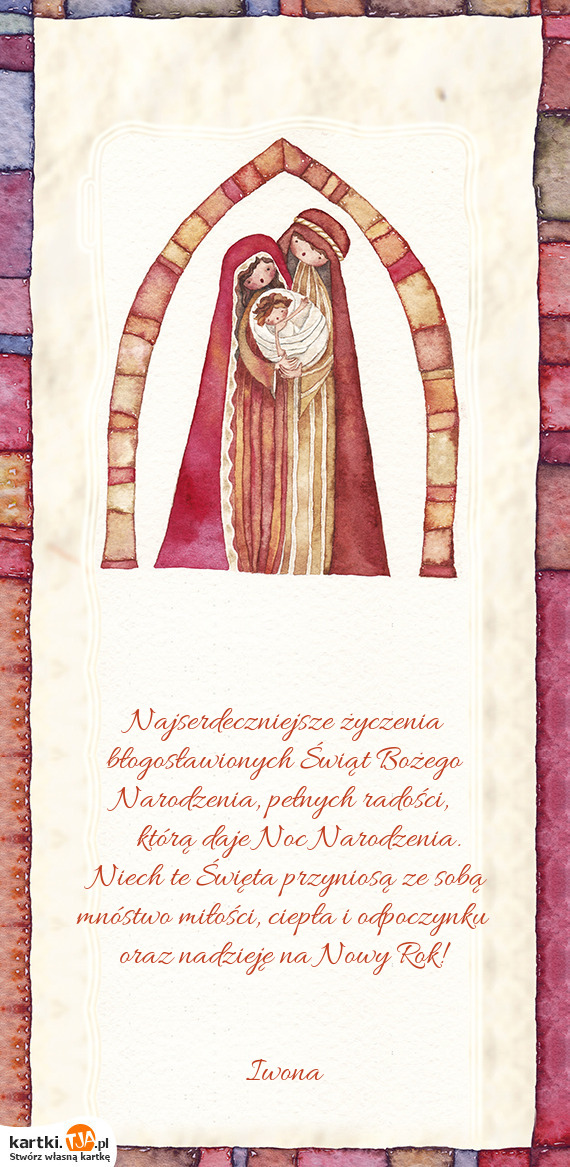 Najserdeczniejsze życzenia
błogosławionych Świąt Bożego
Narodzenia, pełnych radości,
którą daje Noc Narodzenia.
Niech te Święta przyniosą ze sobą
mnóstwo miłości, ciepła i odpoczynku
oraz nadzieję na Nowy Rok!
Iwona
kartki.TJA.pl
Stwórz własną kartkę